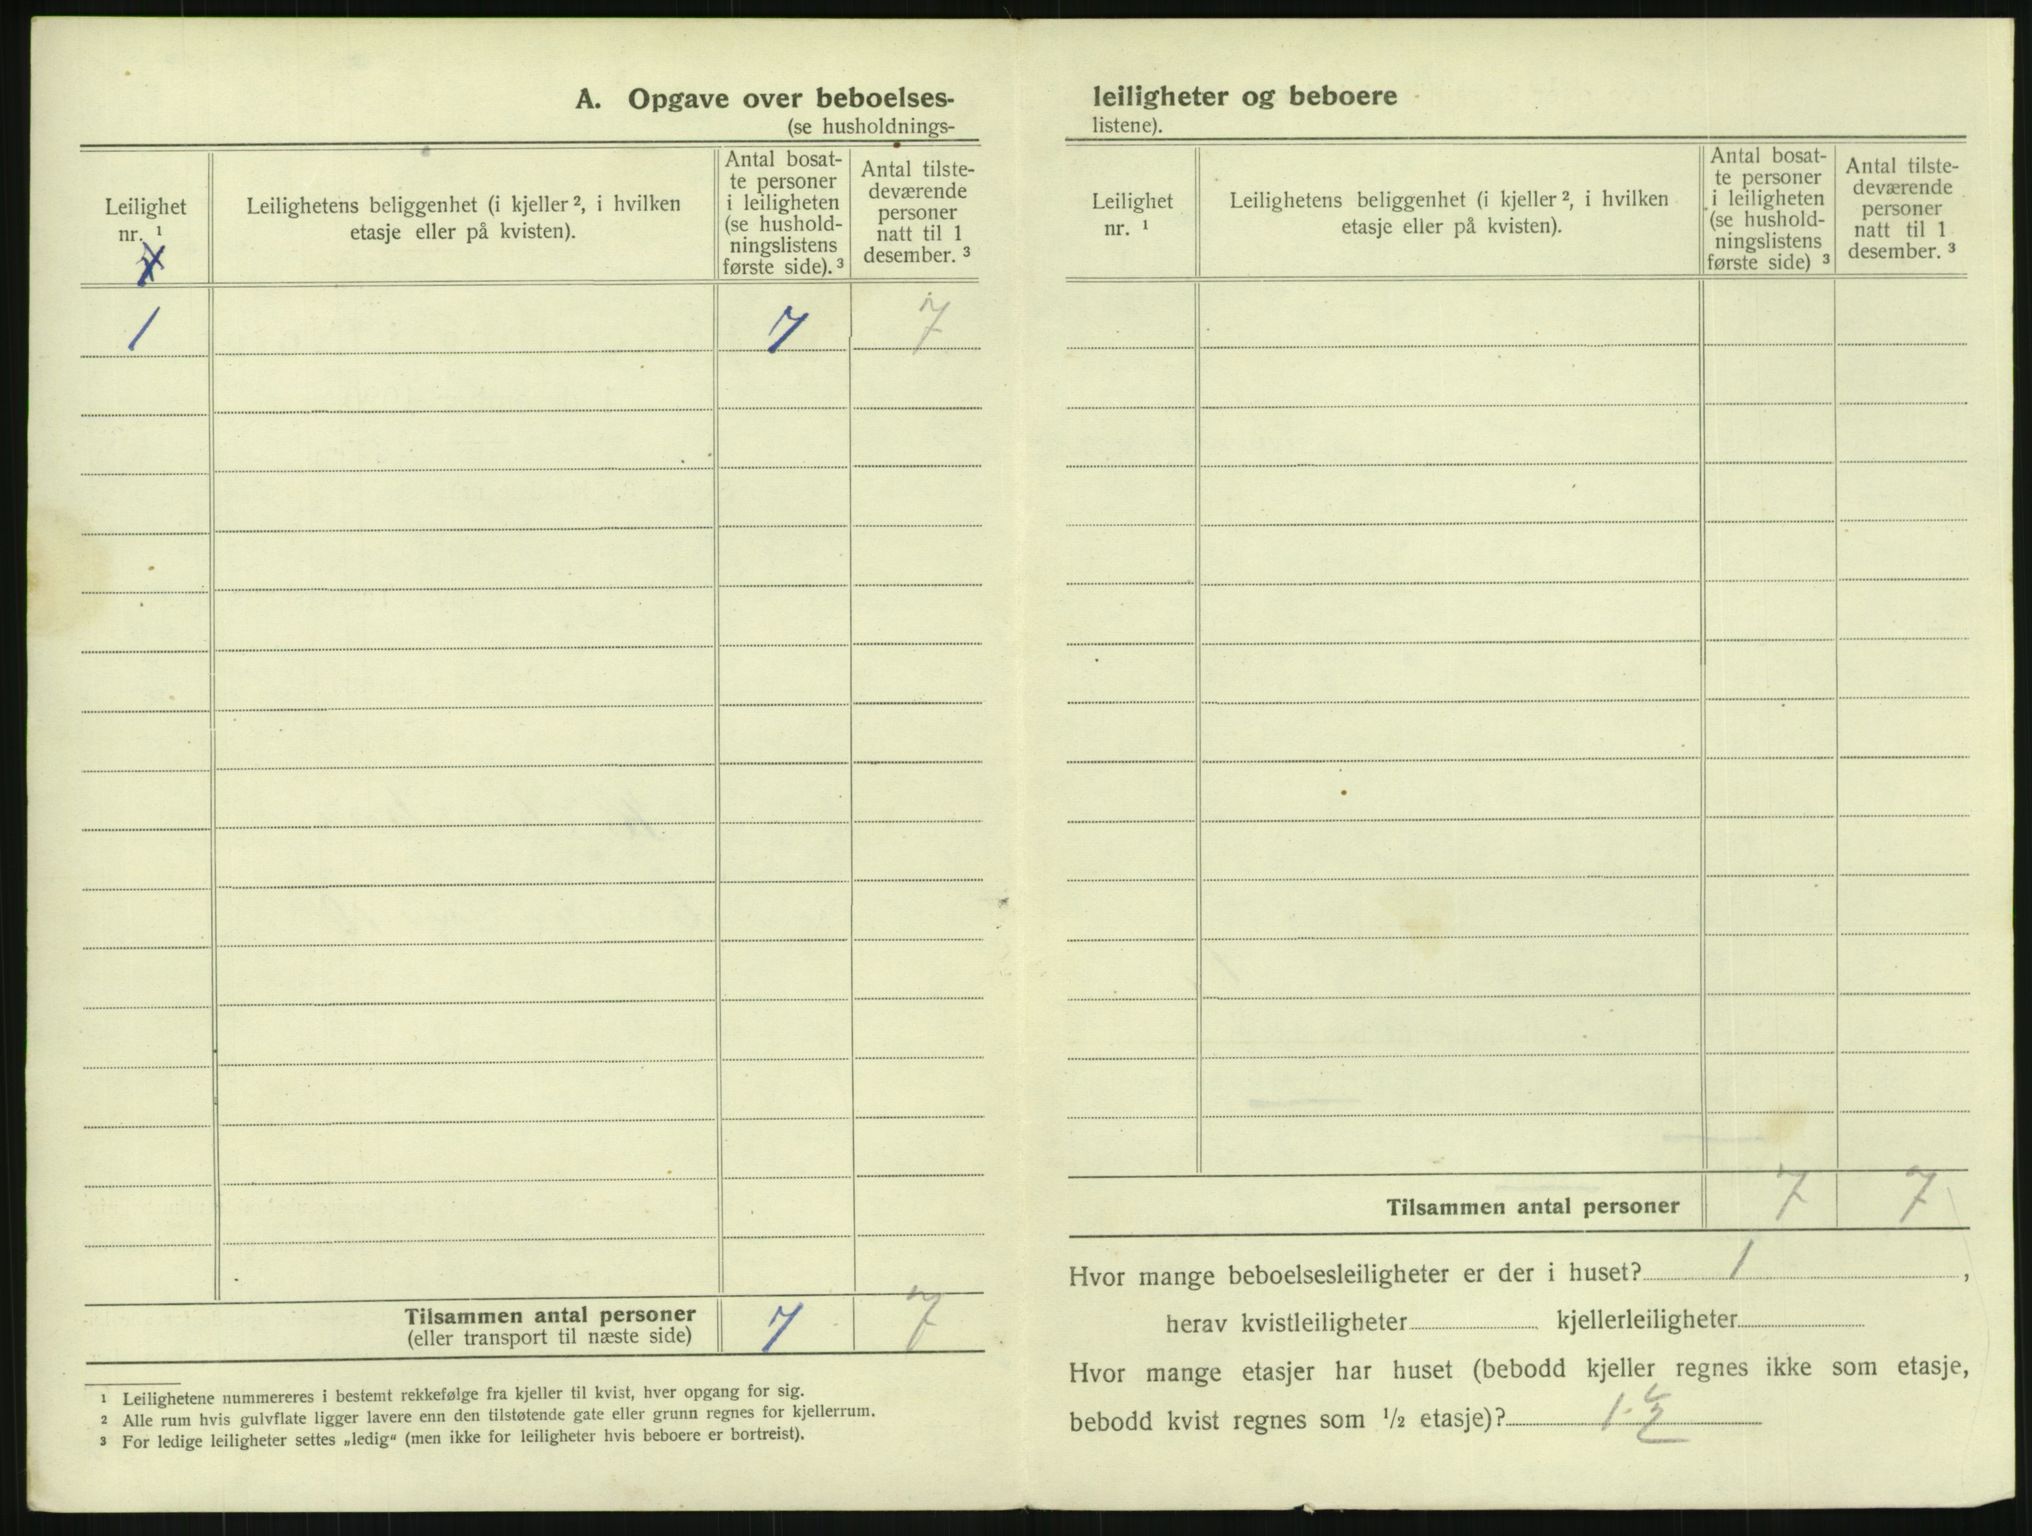 A. Opgave over beboelses-
(se husholdnings-
Leilighet
nr. ¹
Leilighetens beliggenhet (i kjeller ², i hvilken
etasje eller på kvisten).
Antal bosat-
te personer
i leiligheten
(se hushold-
ningslistens
første side). ³
Antal tilste-
deværende
personer
natt til 1
desember. ³
1 7 7
Tilsammen antal personer 7 7
(eller transport til næste side)
¹ Leilighetene nummereres i bestemt rekkefølge fra kjeller til kvist, hver opgang for sig.
² Alle rum hvis gulvflate ligger lavere enn den tilstøtende gate eller grunn regnes for kjellerrum.
³ For ledige leiligheter settes „ledig“ (men ikke for leiligheter hvis beboere er bortreist).
leiligheter og beboere
listene).
Leilighet
nr. ¹
Leilighetens beliggenhet (i kjeller ², i hvilken
etasje eller på kvisten).
Antal bosat-
te personer
i leiligheten
(se hushold-
ningslistens
første side) ³
Antal tilste-
deværende
personer
natt til 1
desember. ³
Tilsammen antal personer 7 7
Hvor mange beboelsesleiligheter er der i huset? 1,
herav kvistleiligheter kjellerleiligheter
Hvor mange etasjer har huset (bebodd kjeller regnes ikke som etasje,
bebodd kvist regnes som ½ etasje)? 1